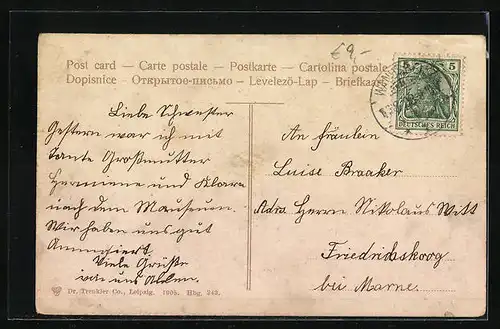 £9,-
Post card – Carte postale – Postkarte – Cartolina postale
Dopisnice – Открытое-письмо – Levelezö-Lap – Briefkaart
5 5
DEUTSCHES REICH
Liebe Schwester
Gestern war ich mit
Tante Großmutter
Hermene und Klara
nach dem Mauseum.
Wir haben uns gut
Amusiert.
Viele Grüße
von uns Allen.
An Fräulein
Luise Braaker
Adrs Herrn Nikolaus Witt
Friedrichskoog
bei Marne.
Dr. Trenkler Co., Leipzig. 1905. Hbg. 243.